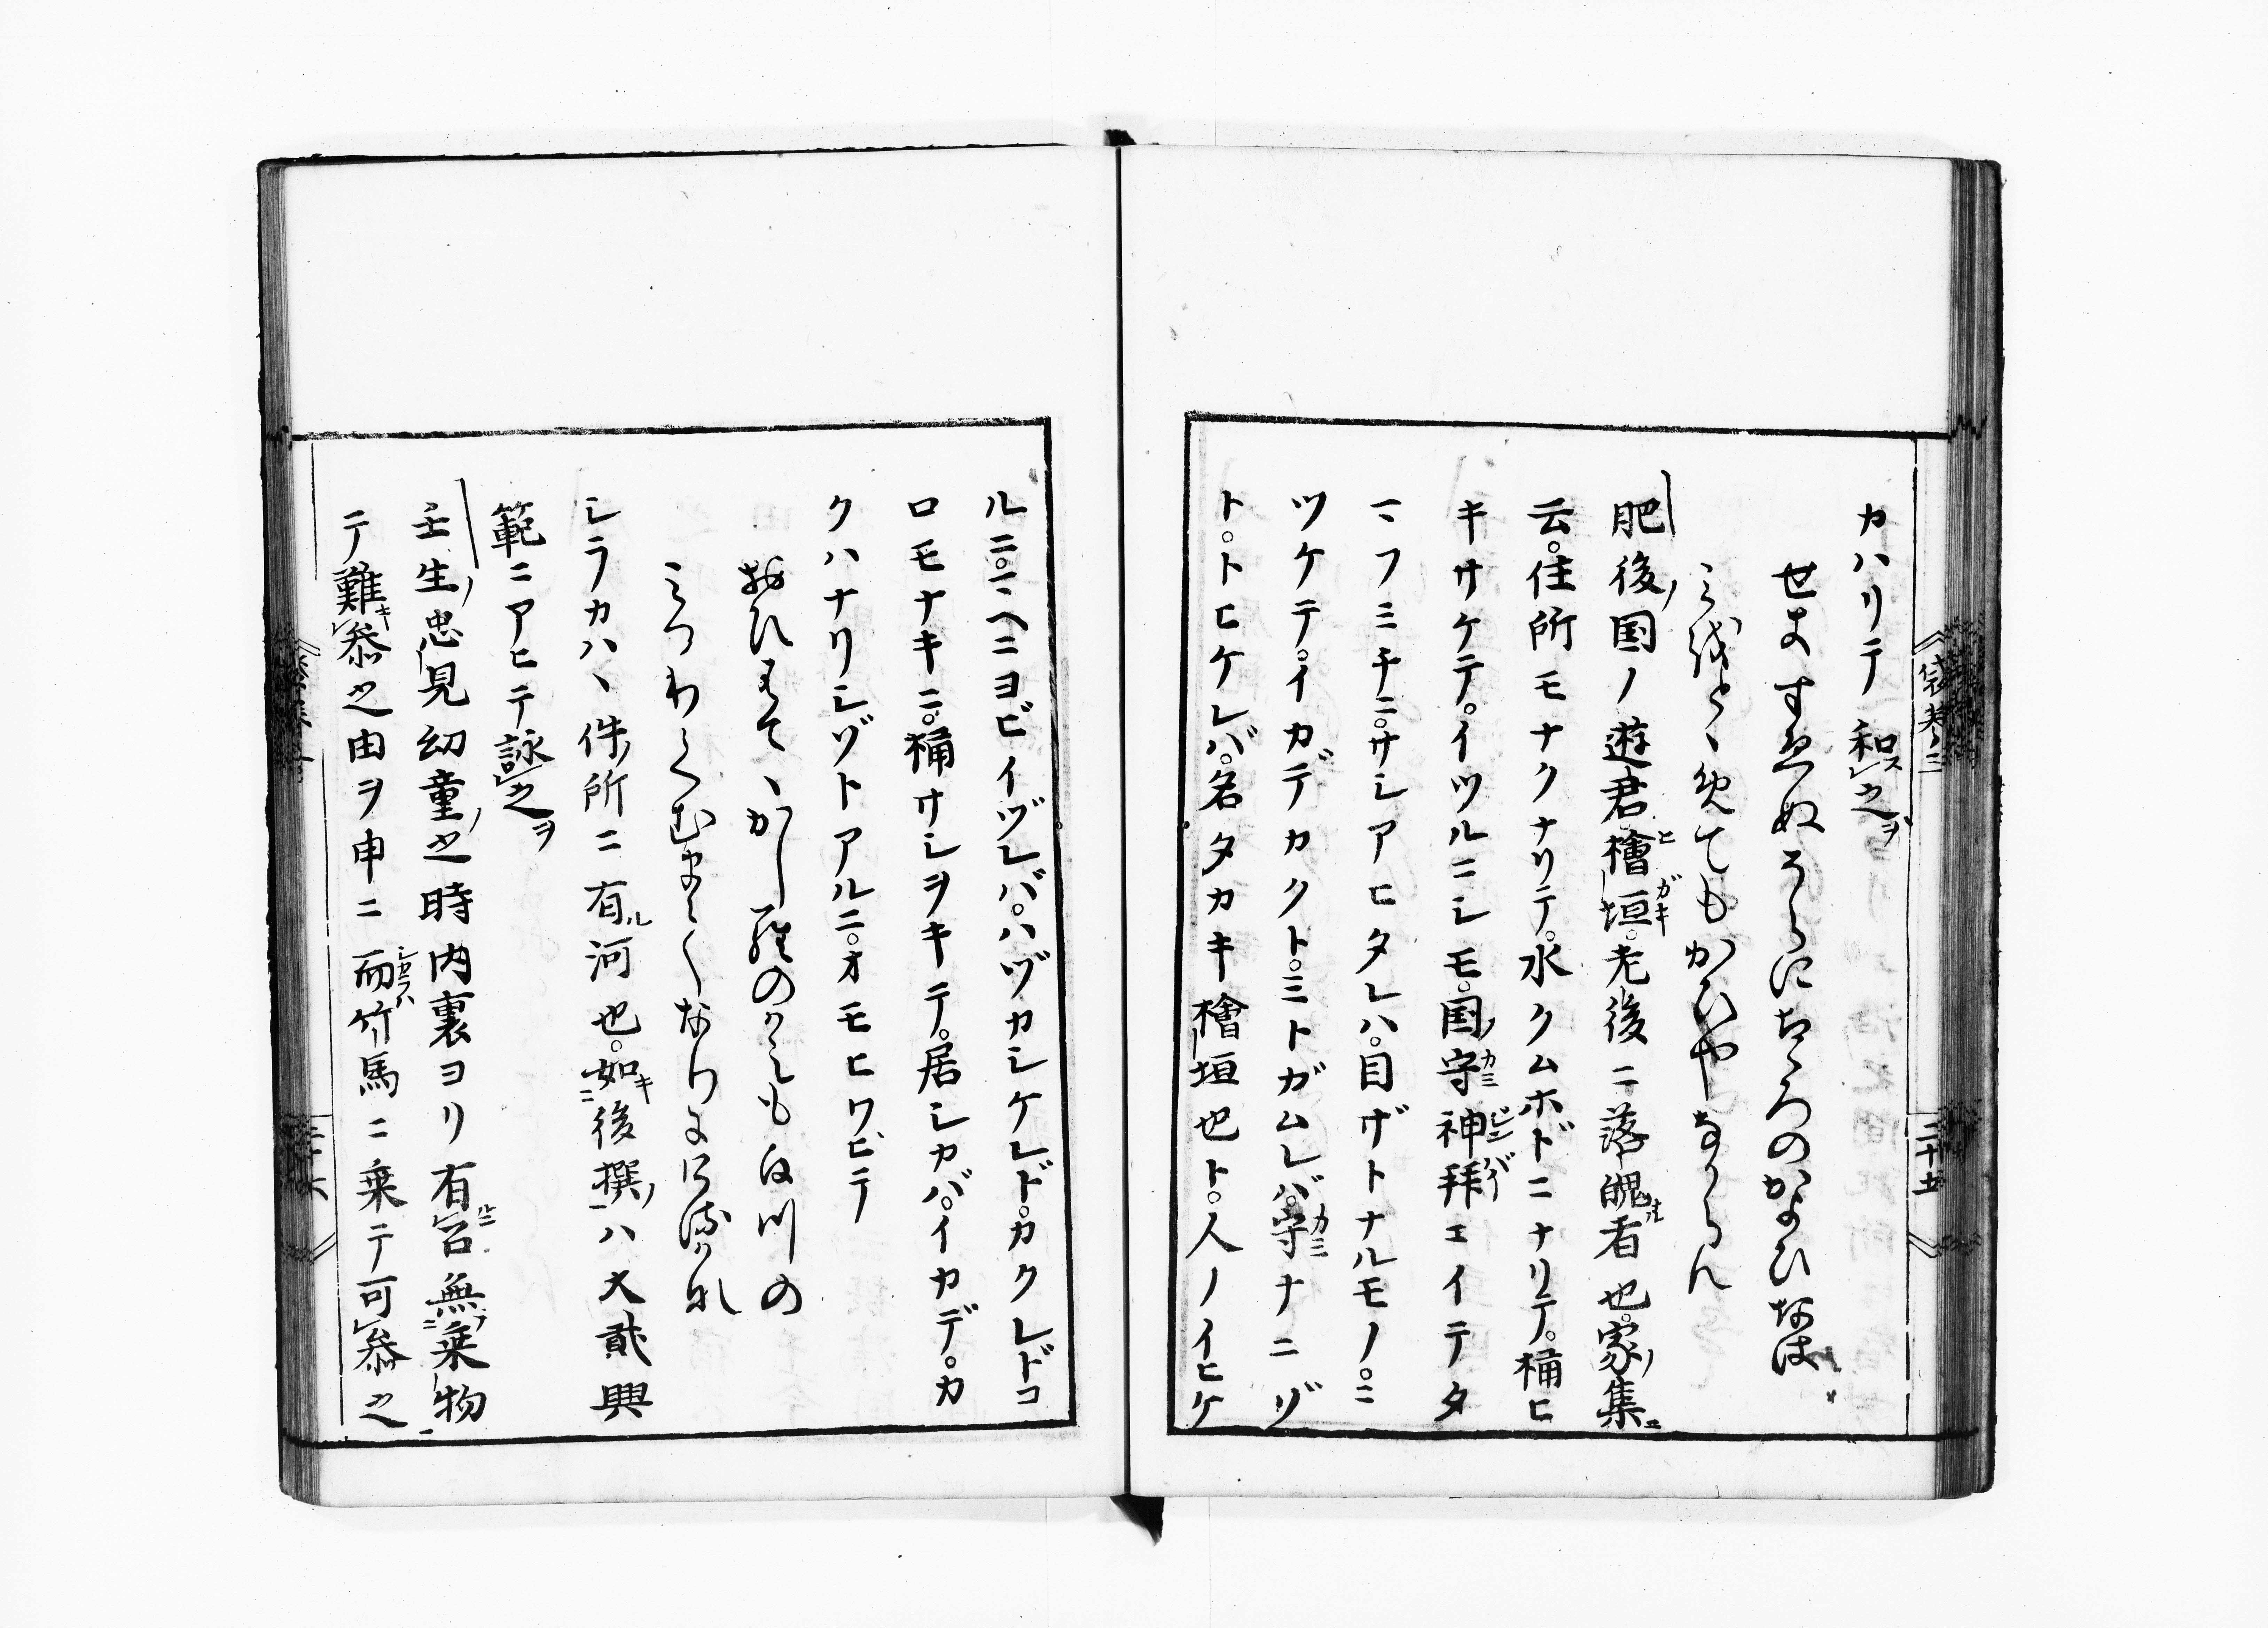 カハリテ和スレ之ヲ
せきすゑぬそらにこゝろのかよひなは
身をとゝめてもかひやなからん
肥後ノ国ノ遊君檜垣。老後ニ落魄者也。家ノ集ニ
云。住所モナクナリテ。水クムホドニナリテ。桶ヒ
キサケテ。イツルニシモ。国ノ守神拝エイテタ
マフミチニ。サシアヒタレハ。目ザトナルモノ。ミ
ツケテ。イカデカクト。ミトガムレバ。守ナニゾ
ト。トヒケレバ。名タカキ檜垣也ト。人ノイヒケ
ルニ。マヘニヨビイヅレバ。ハヅカシケレド。カクレドコ
ロモナキニ。桶サシヲキテ。居シカバ。イカデ。カ
クハナリシゾトアルニ。オモヒワビテ
おひはてゝかしらのかみはしら川の
みつわくむまてなりにけるかな
シラカハヽ件ノ所ニ有ル河也。如キ後撰ノハ大貳興
範ニアヒテ詠之ヲ
壬生ノ忠見幼童之時内裏ヨリ有召無乗物
テ難キ参之由ヲ申ニ而竹馬ニ乗テ可参之
袋巻三
二十五